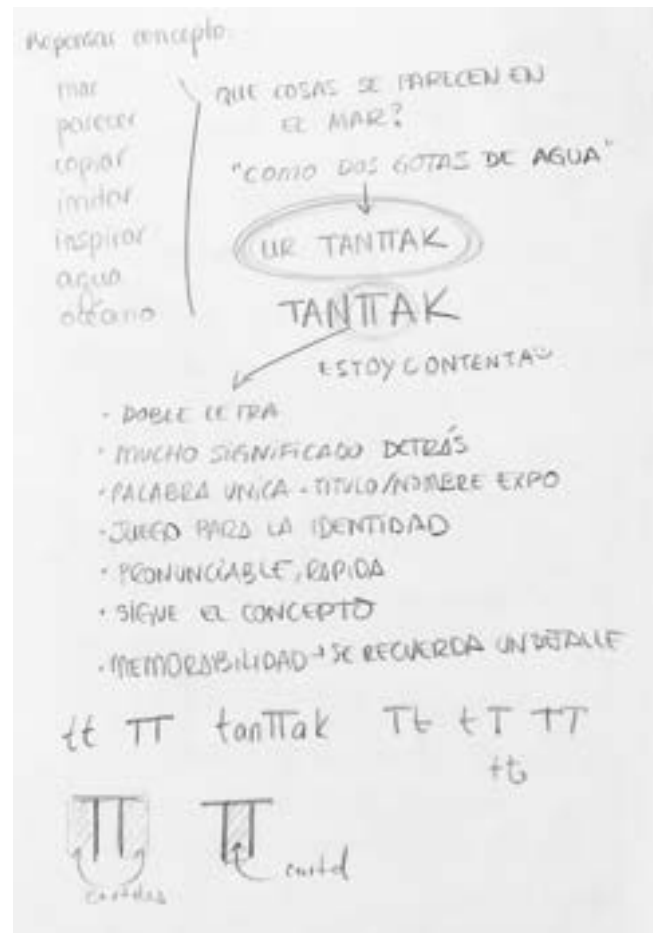 Repensar concepto.
mar
parecer
copiar
imitar
inspirar
agua
océano
QUE COSAS SE PARECEN EN
EL MAR?
"COMO DOS GOTAS DE AGUA"
UR TANTTAK
TANTTAK
ESTOY CONTENTA
· DOBLE LETRA
· MUCHO SIGNIFICADO DETRÁS
· PALABRA UNICA - TITULO/NOMBRE EXPO
· JUEGO PARA LA IDENTIDAD
· PRONUNCIABLE, RAPIDA
· SIGUE EL CONCEPTO
· MEMORABILIDAD → SE RECUERDA UN DETALLE
tt TT tanTTak Tt tT TT
tt
TT TT
carteles cartel